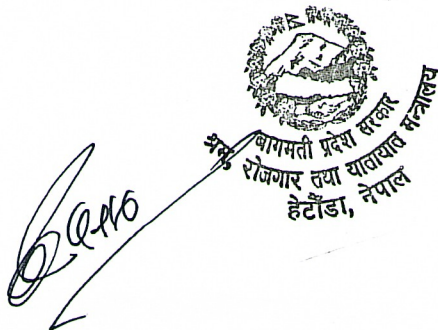 बागमती प्रदेश सरकार
श्रम, रोजगार तथा यातायात मन्त्रालय
हेटौंडा, नेपाल